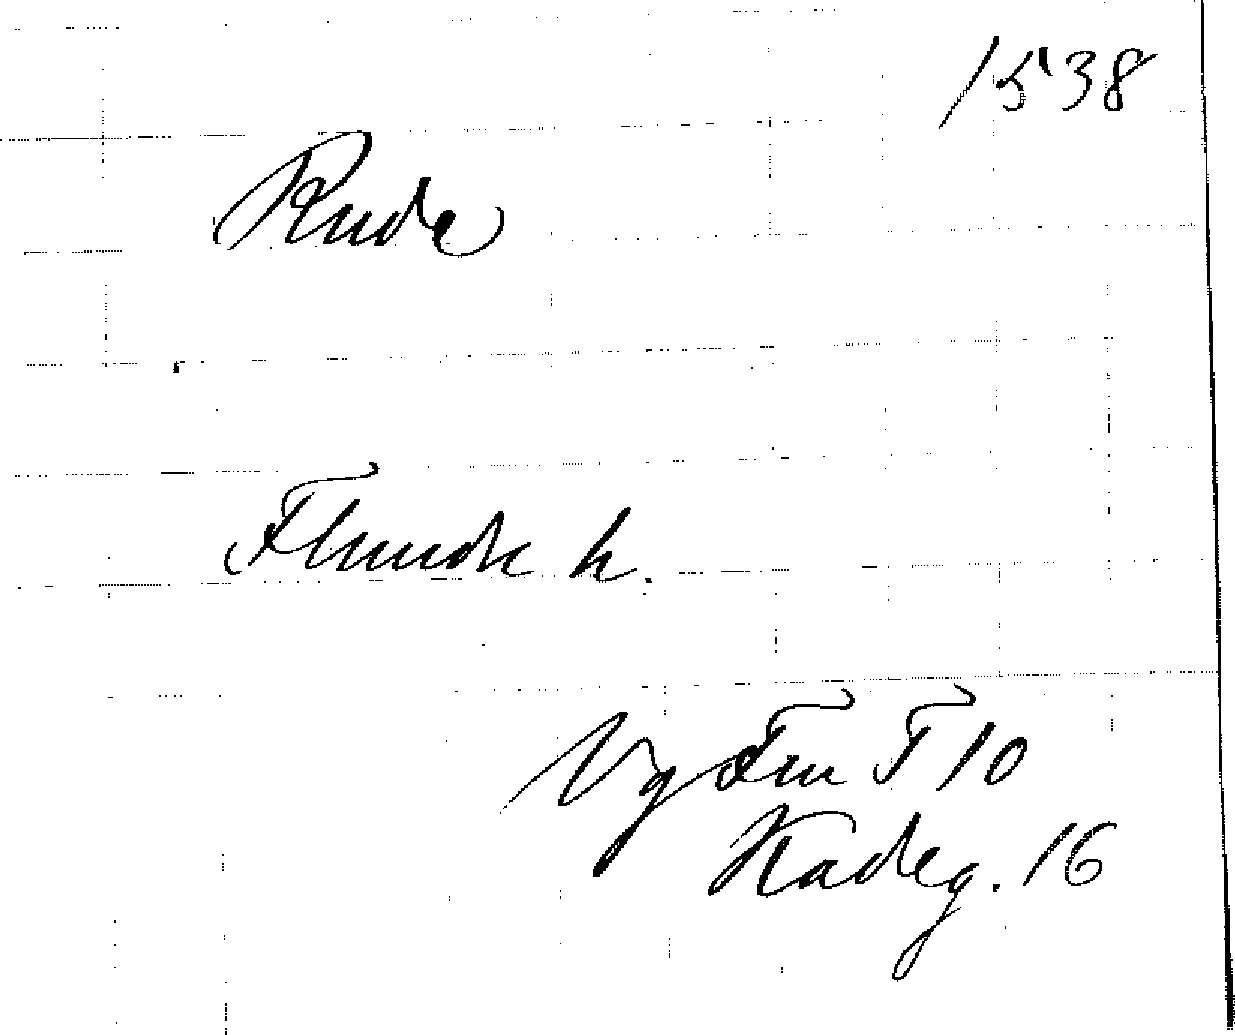 1538
Ruda
Flunda h.
Vg Fru T 10
Kadeg. 16